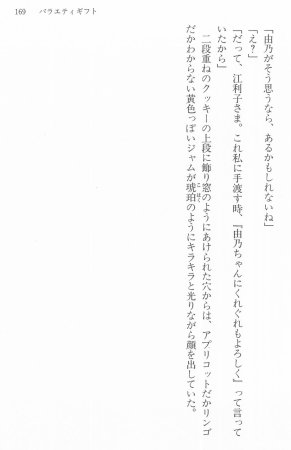 169　バラエティギフト
「由乃がそう思うなら、あるかもしれないね」
「え？」
「だって、江利子さま。これ私に手渡す時、『由乃ちゃんにくれぐれもよろしく』って言って
いたから」
　二段重ねのクッキーの上段に飾り窓のようにあけられた穴からは、アプリコットだかリンゴ
だかわからない黄色っぽいジャムが琥珀のようにキラキラと光りながら顔を出していた。
こはく